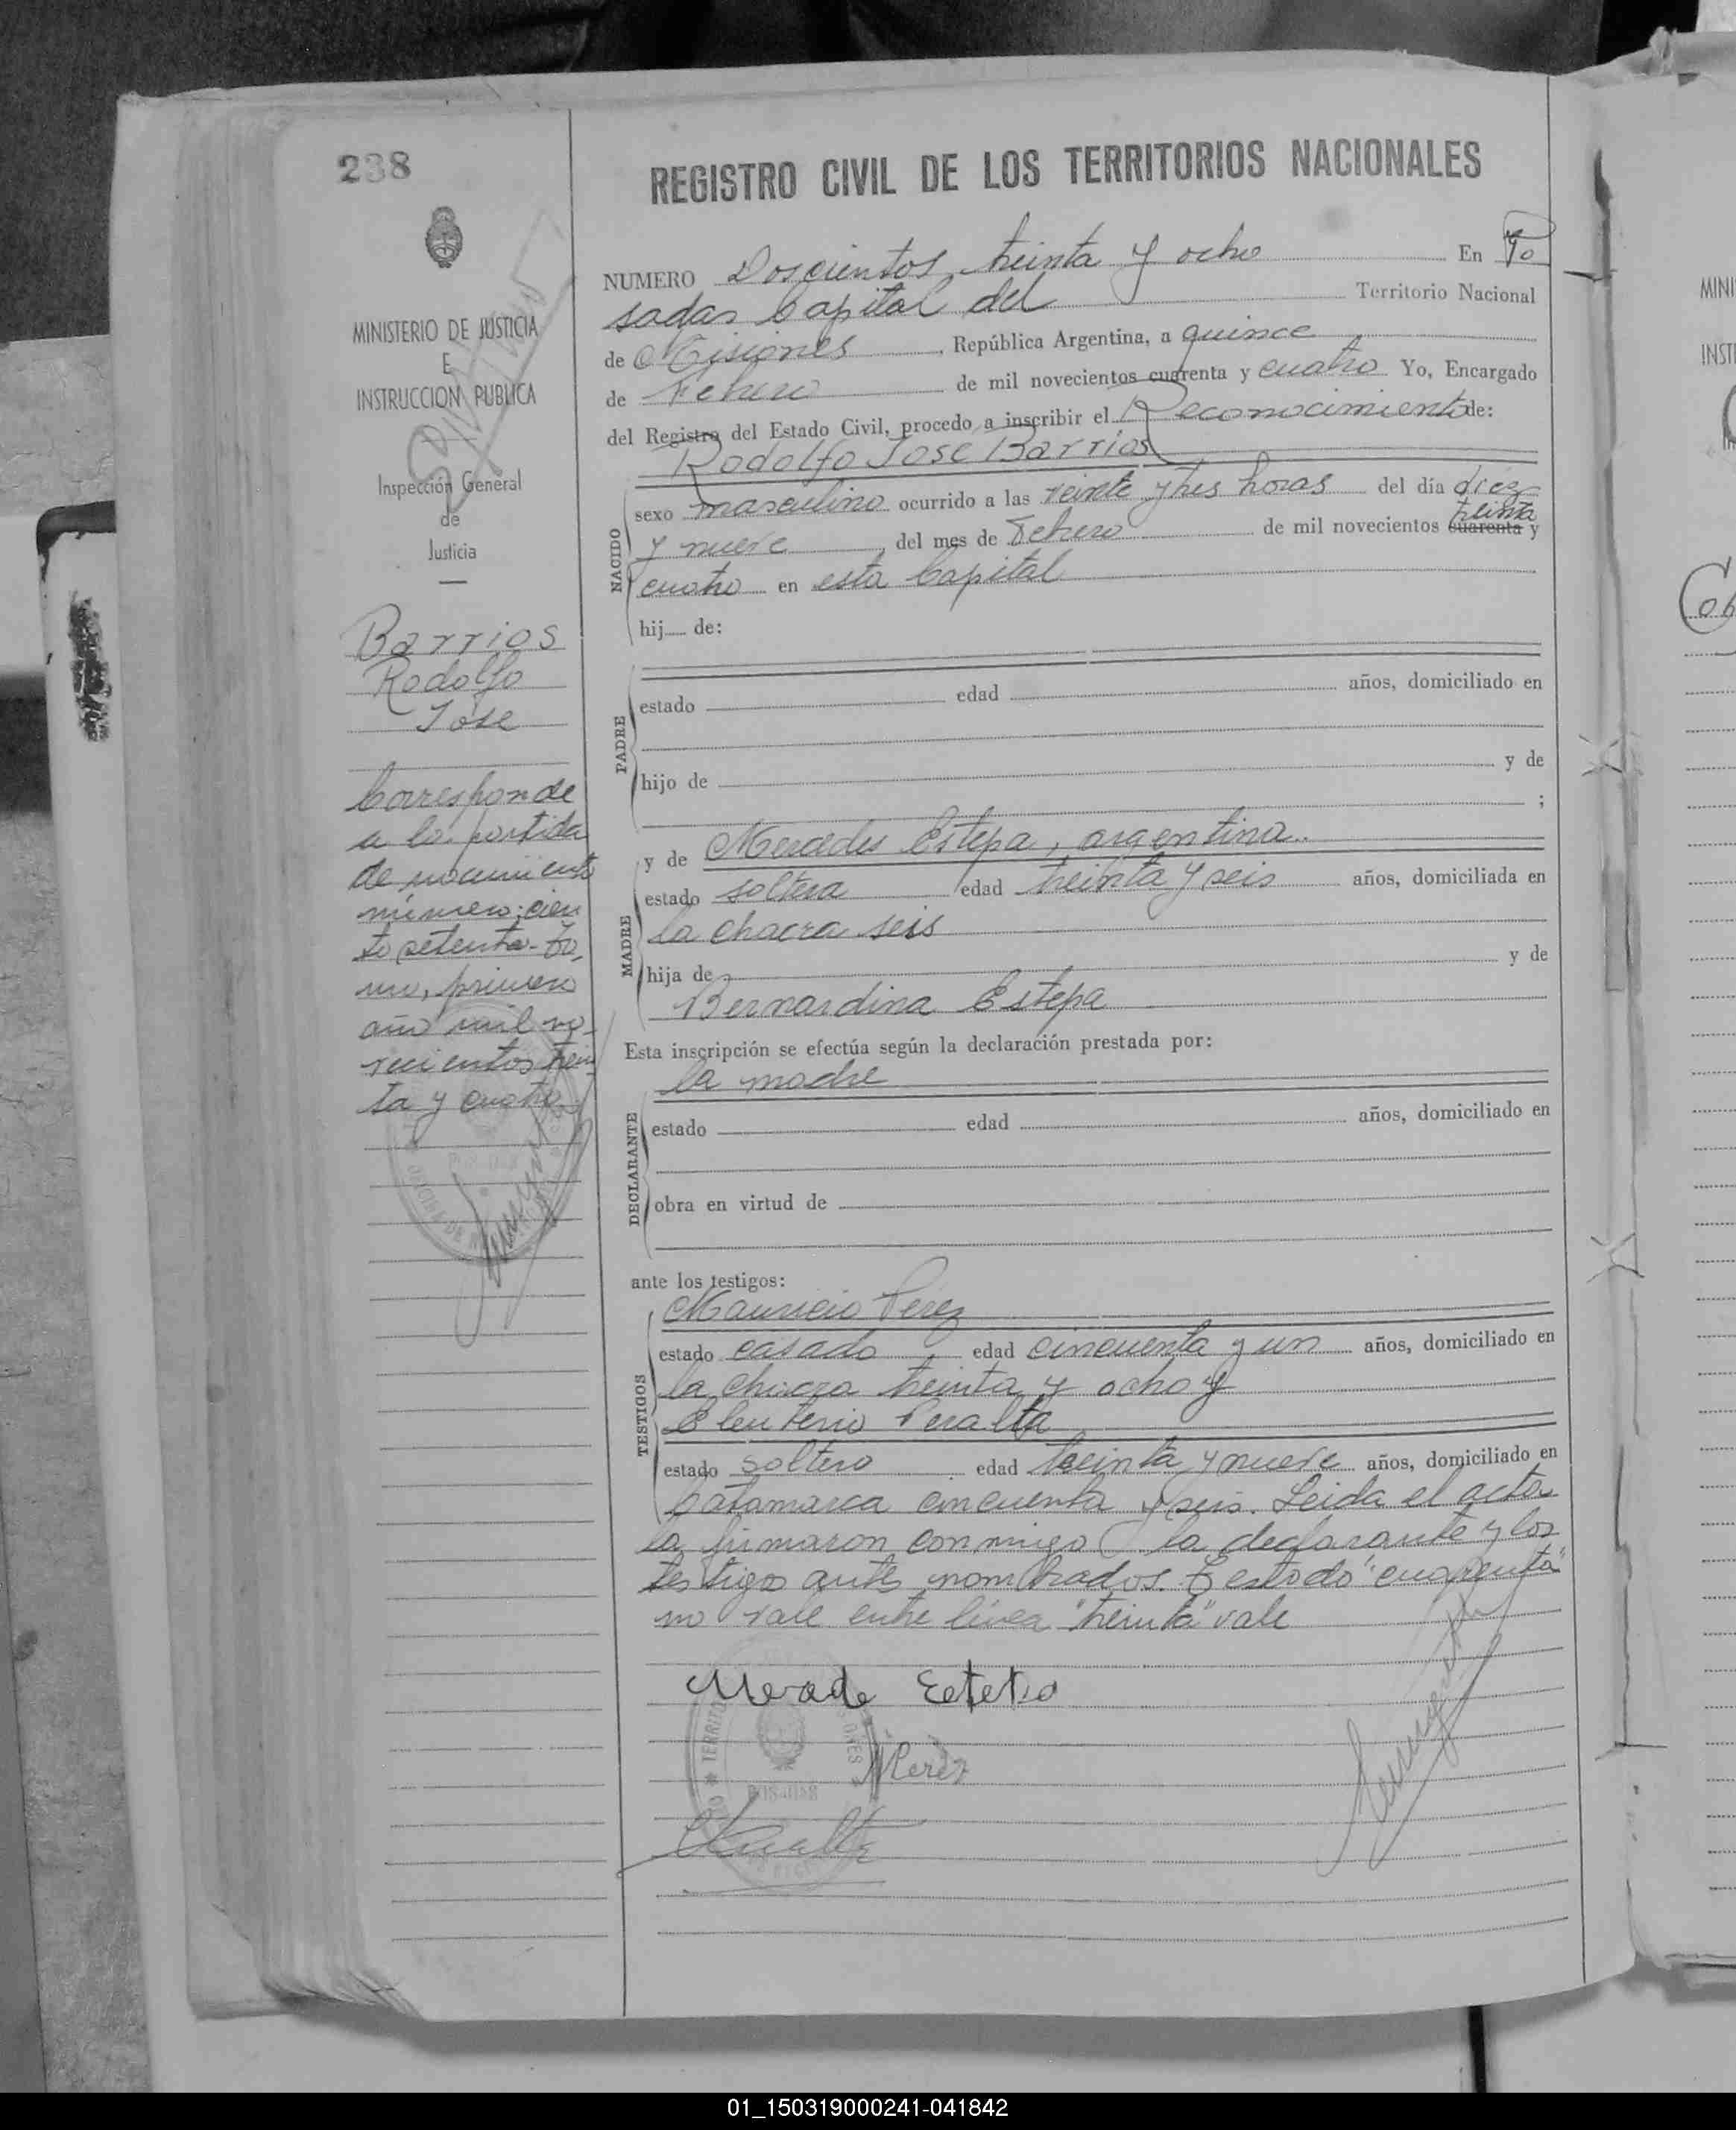 238
MINISTERIO DE JUSTICIA
E
INSTRUCCION PUBLICA
Inspección General
de
Justicia
Barrios
Rodolfo
Jose
Corresponde
a la partida
de nacimiento
número: cien
to setenta - To,
mo, primero
año mil no-
vecientos trein
ta y cuatro
REGISTRO CIVIL DE LOS TERRITORIOS NACIONALES
NUMERO Doscientos treinta y ocho En Po
sadas Capital del Territorio Nacional
de Misiones, República Argentina, a quince
de Febrero de mil novecientos cuarenta y cuatro Yo, Encargado
del Registro del Estado Civil, procedo a inscribir el Reconocimiento de:
Rodolfo Jose Barrios
NACIDO
sexo masculino ocurrido a las veinte y tres horas del día diez
treinta
y nueve, del mes de Febrero de mil novecientos cuarenta y
cuatro en esta Capital
hij de:
PADRE
estado edad años, domiciliado en
hijo de y de
;
y de Mercedes Estepa, argentina.
MADRE
estado soltera edad treinta y seis años, domiciliada en
la chacra seis
hija de y de
Bernardina Estepa
Esta inscripción se efectúa según la declaración prestada por:
la madre
DECLARANTE
estado edad años, domiciliado en
obra en virtud de
ante los testigos:
Mauricio Perez
TESTIGOS
estado casado edad cincuenta y un años, domiciliado en
la chacra treinta y ocho y
Eleuterio Peralta
estado soltero edad treinta y nueve años, domiciliado en
Catamarca cincuenta y seis. Leida el acta
la firmaron conmigo la declarante y los
testigos antes nombrados. Testado "cuarenta"
no vale entre línea "treinta" vale
POSADAS
01_150319000241-041842